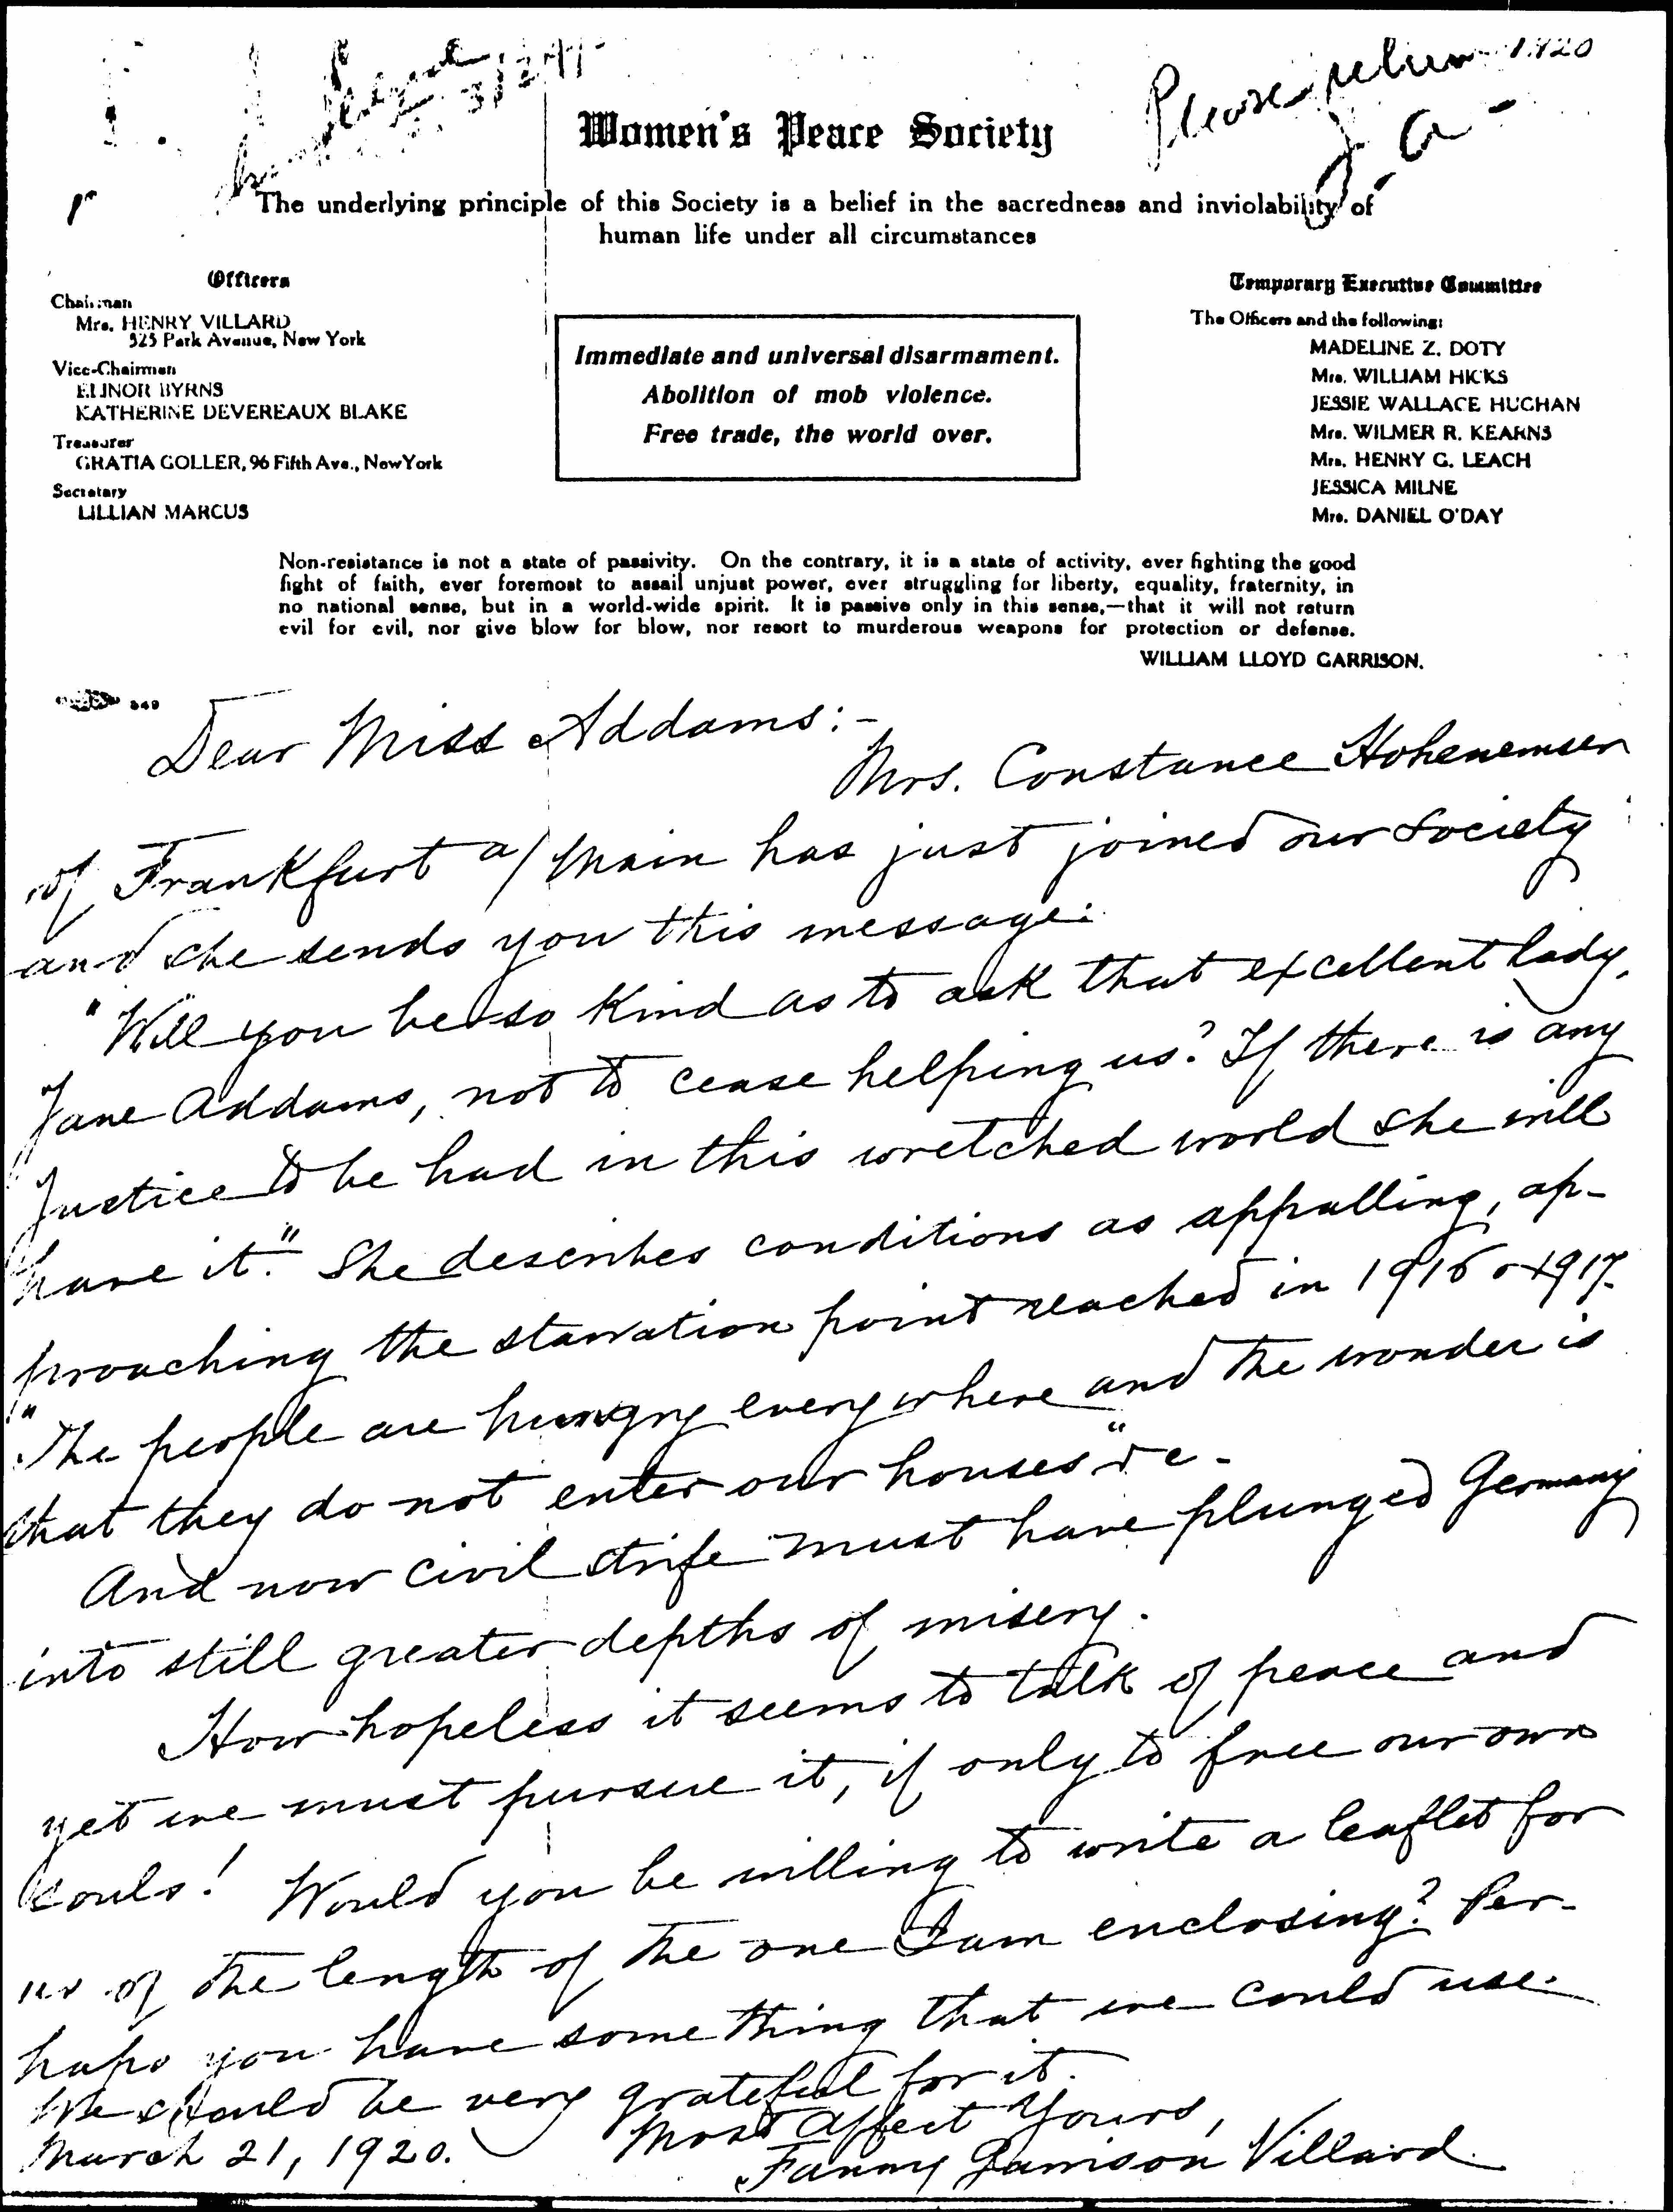 Please return 1920
J. A -
Women's Peace Society
The underlying principle of this Society is a belief in the sacredness and inviolability of
human life under all circumstances
Officers
Chairman
Mrs. HENRY VILLARD
525 Park Avenue, New York
Vice-Chairmen
ELINOR BYRNS
KATHERINE DEVEREAUX BLAKE
Treasurer
GRATIA GOLLER, 96 Fifth Ave., New York
Secretary
LILLIAN MARCUS
Immediate and universal disarmament.
Abolition of mob violence.
Free trade, the world over.
Temporary Executive Committee
The Officers and the following:
MADELINE Z. DOTY
Mrs. WILLIAM HICKS
JESSIE WALLACE HUGHAN
Mrs. WILMER R. KEARNS
Mrs. HENRY G. LEACH
JESSICA MILNE
Mrs. DANIEL O'DAY
Non-resistance is not a state of passivity. On the contrary, it is a state of activity, ever fighting the good
fight of faith, ever foremost to assail unjust power, ever struggling for liberty, equality, fraternity, in
no national sense, but in a world-wide spirit. It is passive only in this sense,—that it will not return
evil for evil, nor give blow for blow, nor resort to murderous weapons for protection or defense.
WILLIAM LLOYD GARRISON.
349
Dear Miss Addams:-
Mrs. Constance Hohenemser
of Frankfurt a/ Main has just joined our Society
and she sends you this message:
"Will you be so kind as to ask that excellent lady,
Jane Addams, not to cease helping us? If there is any
Justice to be had in this wretched world she will
have it." She describes conditions as appalling, ap-
proaching the starvation point reached in 1916 or 1917.
"The people are hungry everywhere and the wonder is
that they do not enter our houses" &c -
And now civil strife must have plunged Germany
into still greater depths of misery.
How hopeless it seems to talk of peace and
yet we must pursue it, if only to free our own
souls! Would you be willing to write a leaflet for
us of the length of the one I am enclosing? Per-
haps you have something that we could use.
We should be very grateful for it.
Most affect Yours,
March 21, 1920.
Fanny Garrison Villard